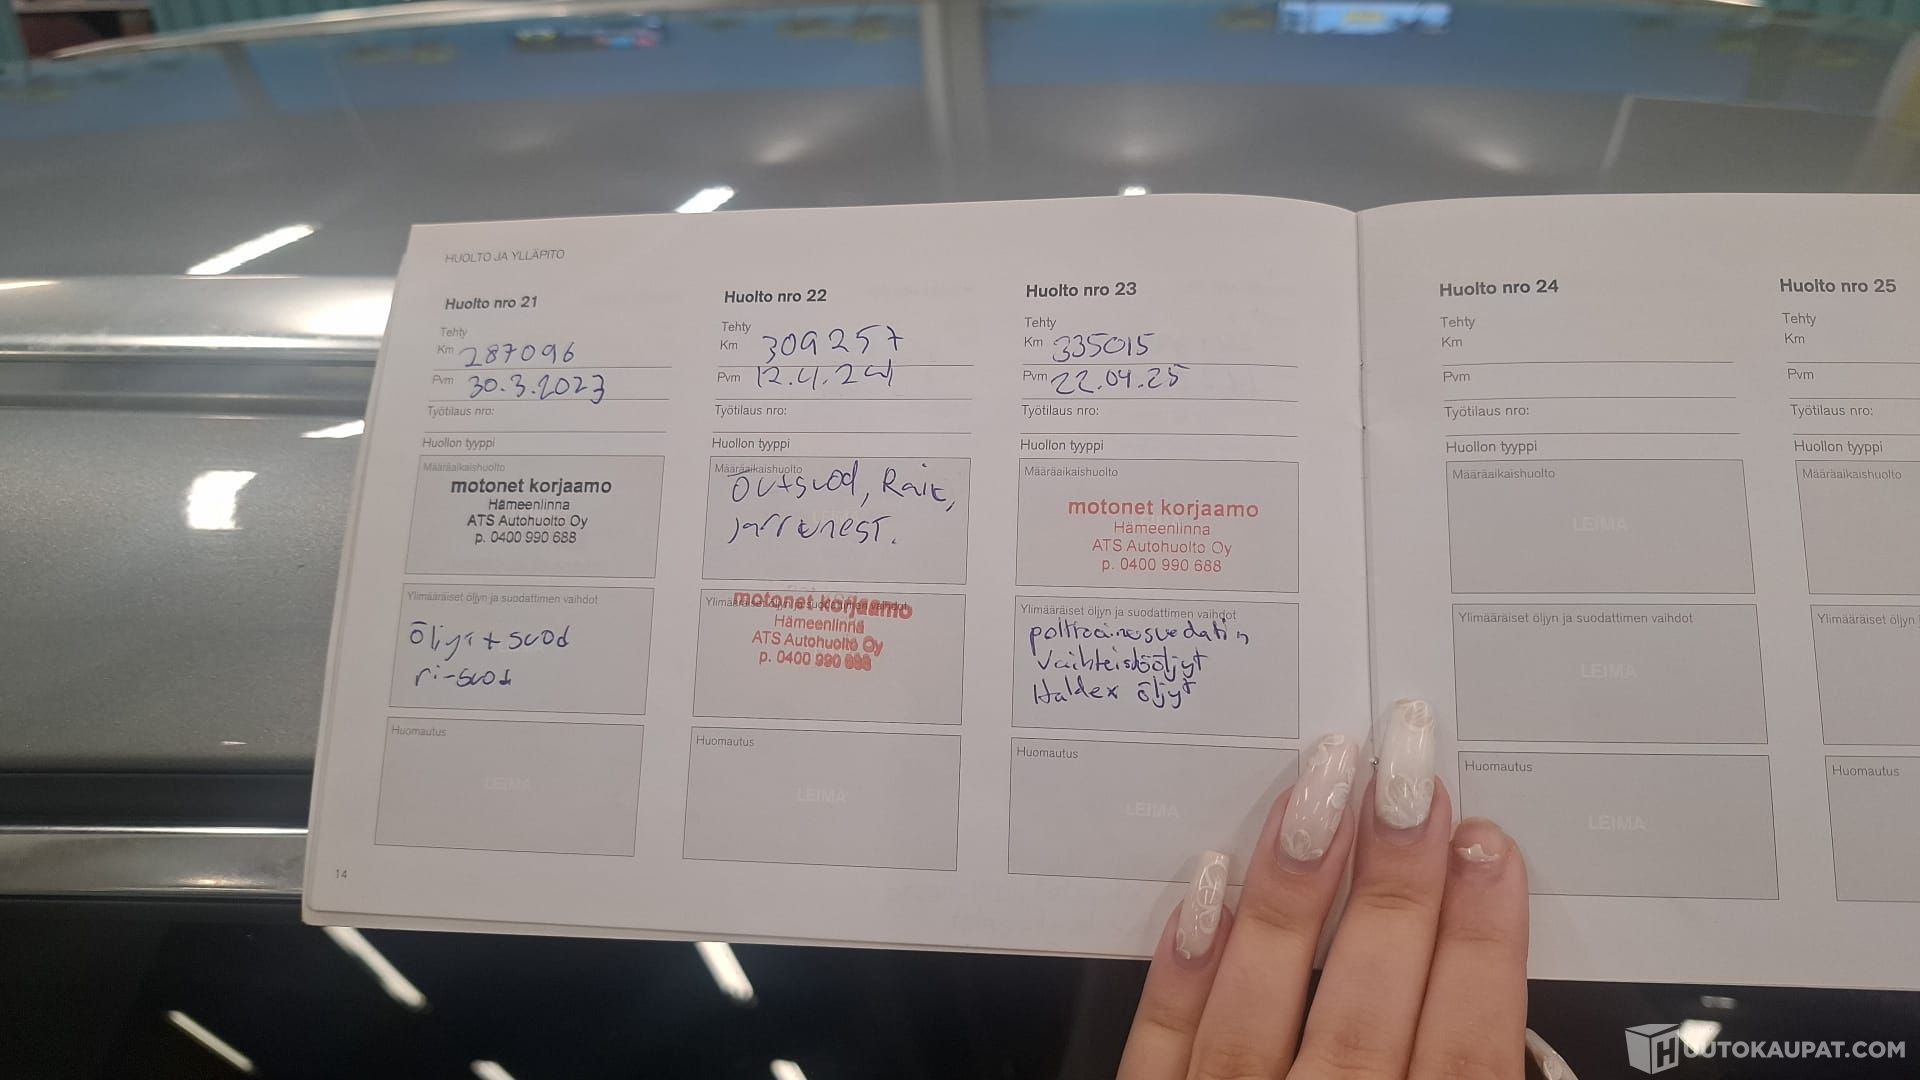 HUOLTO JA YLLÄPITO
Huolto nro 21
Tehty
Km 287096
Pvm 30.3.2023
Työtilaus nro:
Huollon tyyppi
Määräaikaishuolto
motonet korjaamo
Hämeenlinna
ATS Autohuolto Oy
p. 0400 990 688
Ylimääräiset öljyn ja suodattimen vaihdot
Öljyt + suod
ri-suod
Huomautus
LEIMA
14
Huolto nro 22
Tehty
Km 309257
Pvm 12.4.24
Työtilaus nro:
Huollon tyyppi
Määräaikaishuolto
Öljt+suod, Rait,
jarrunest.
Ylimääräiset öljyn ja suodattimen vaihdot
motonet korjaamo
Hämeenlinna
ATS Autohuolto Oy
p. 0400 990 688
Huomautus
LEIMA
Huolto nro 23
Tehty
Km 335015
Pvm 22.04.25
Työtilaus nro:
Huollon tyyppi
Määräaikaishuolto
motonet korjaamo
Hämeenlinna
ATS Autohuolto Oy
p. 0400 990 688
Ylimääräiset öljyn ja suodattimen vaihdot
polttoainesuodatin
vaihteistööljyt
Haldex öljyt
Huomautus
LEIMA
Huolto nro 24
Tehty
Km
Pvm
Työtilaus nro:
Huollon tyyppi
Määräaikaishuolto
LEIMA
Ylimääräiset öljyn ja suodattimen vaihdot
LEIMA
Huomautus
LEIMA
Huolto nro 25
Tehty
Km
Pvm
Työtilaus nro:
Huollon tyyppi
Määräaikaishuolto
Ylimääräiset öljyn
Huomautus
HUUTOKAUPAT.COM